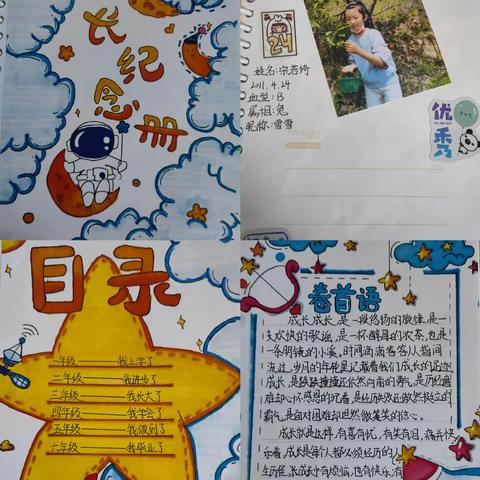 成长纪念册
24
姓名:宋若绮
2011.4.24
血型:B
属相:兔
昵称:雪雪
优秀
目录
一年级————我上学了
二年级————我进步了
三年级————我长大了
四年级————我学会了
五年级————我做到了
六年级————我毕业了
卷首语
成长成长,是一段悠扬的旋律,是一
支欢快的歌谣,是一杯醇香的浓茶,也是
一条明镜的小溪,时间滴滴答答从指间
流过,岁月的年轮里记载着我们成长的足迹
成长,是跌跌撞撞还依然向前的勇气,是历经磨
难却心怀感恩的
霸气,是面对困难却坦然微笑的信心。
成长就是这样,有喜有忧,有笑有泪,痛并快
乐着,成长是每个人都必须经历的人
生历程,
成长中有烦恼,也有快乐,有